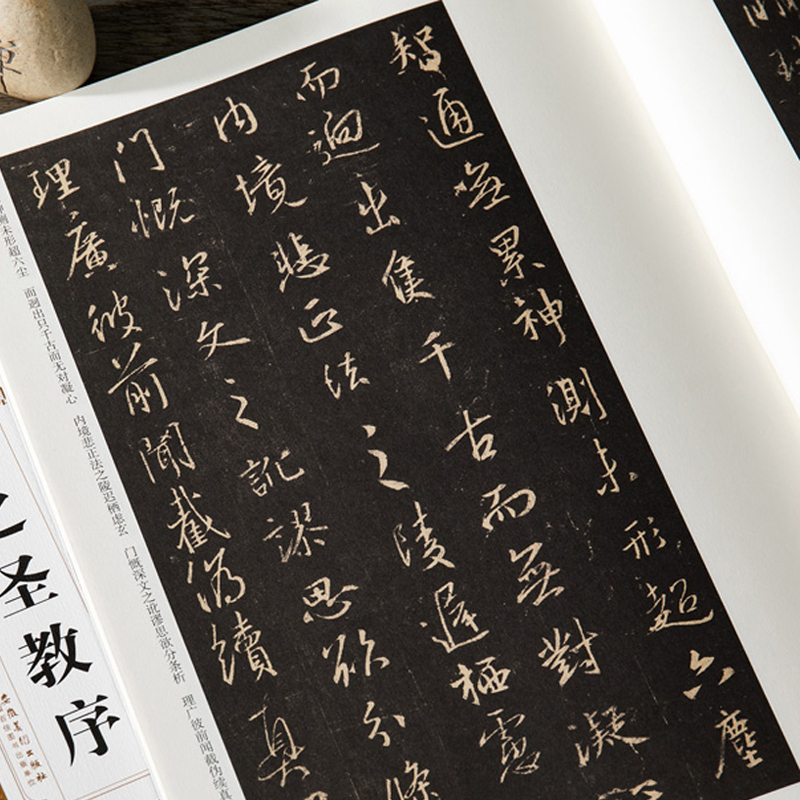 智通無累神測未形超六塵
而迥出隻千古而無對凝
內境悲正法之陵遲栖慮
门慨深文之訛謬思欲分條
理廣彼前聞截偽續真
神测未形超六尘 而迥出只千古而无对凝心 内境悲正法之陵迟栖虑玄 门慨深文之讹谬思欲分条析 理广彼前闻截伪续真
之圣教序
安徽美术出版社